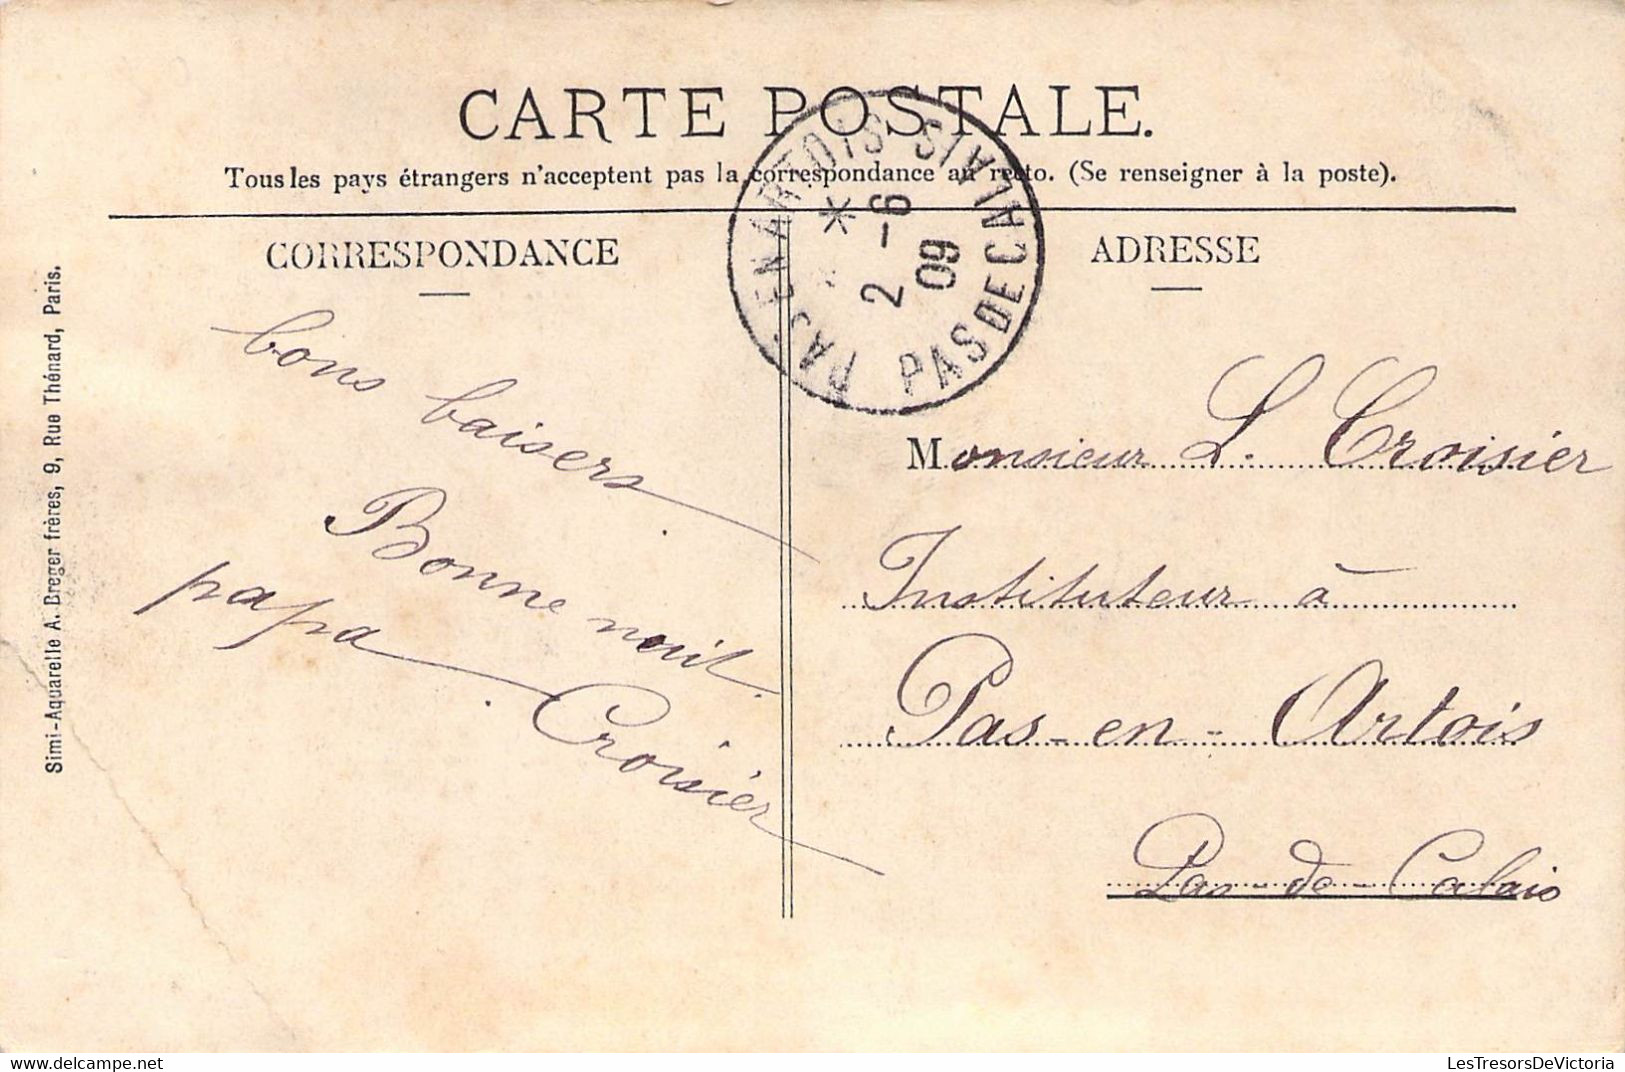 CARTE POSTALE.
Tous les pays étrangers n'acceptent pas la correspondance au recto. (Se renseigner à la poste).
CORRESPONDANCE
ADRESSE
PAS EN ARTOIS
PAS DE CALAIS
*
2 - 6
09
bons baisers.
Bonne nuit.
papa.
Croisier
Monsieur L. Croisier
Instituteur à
Pas-en-Artois
Pas-de-Calais
Simi-Aquarelle A. Breger frères, 9, Rue Thénard, Paris.
LesTresorsDeVictoria